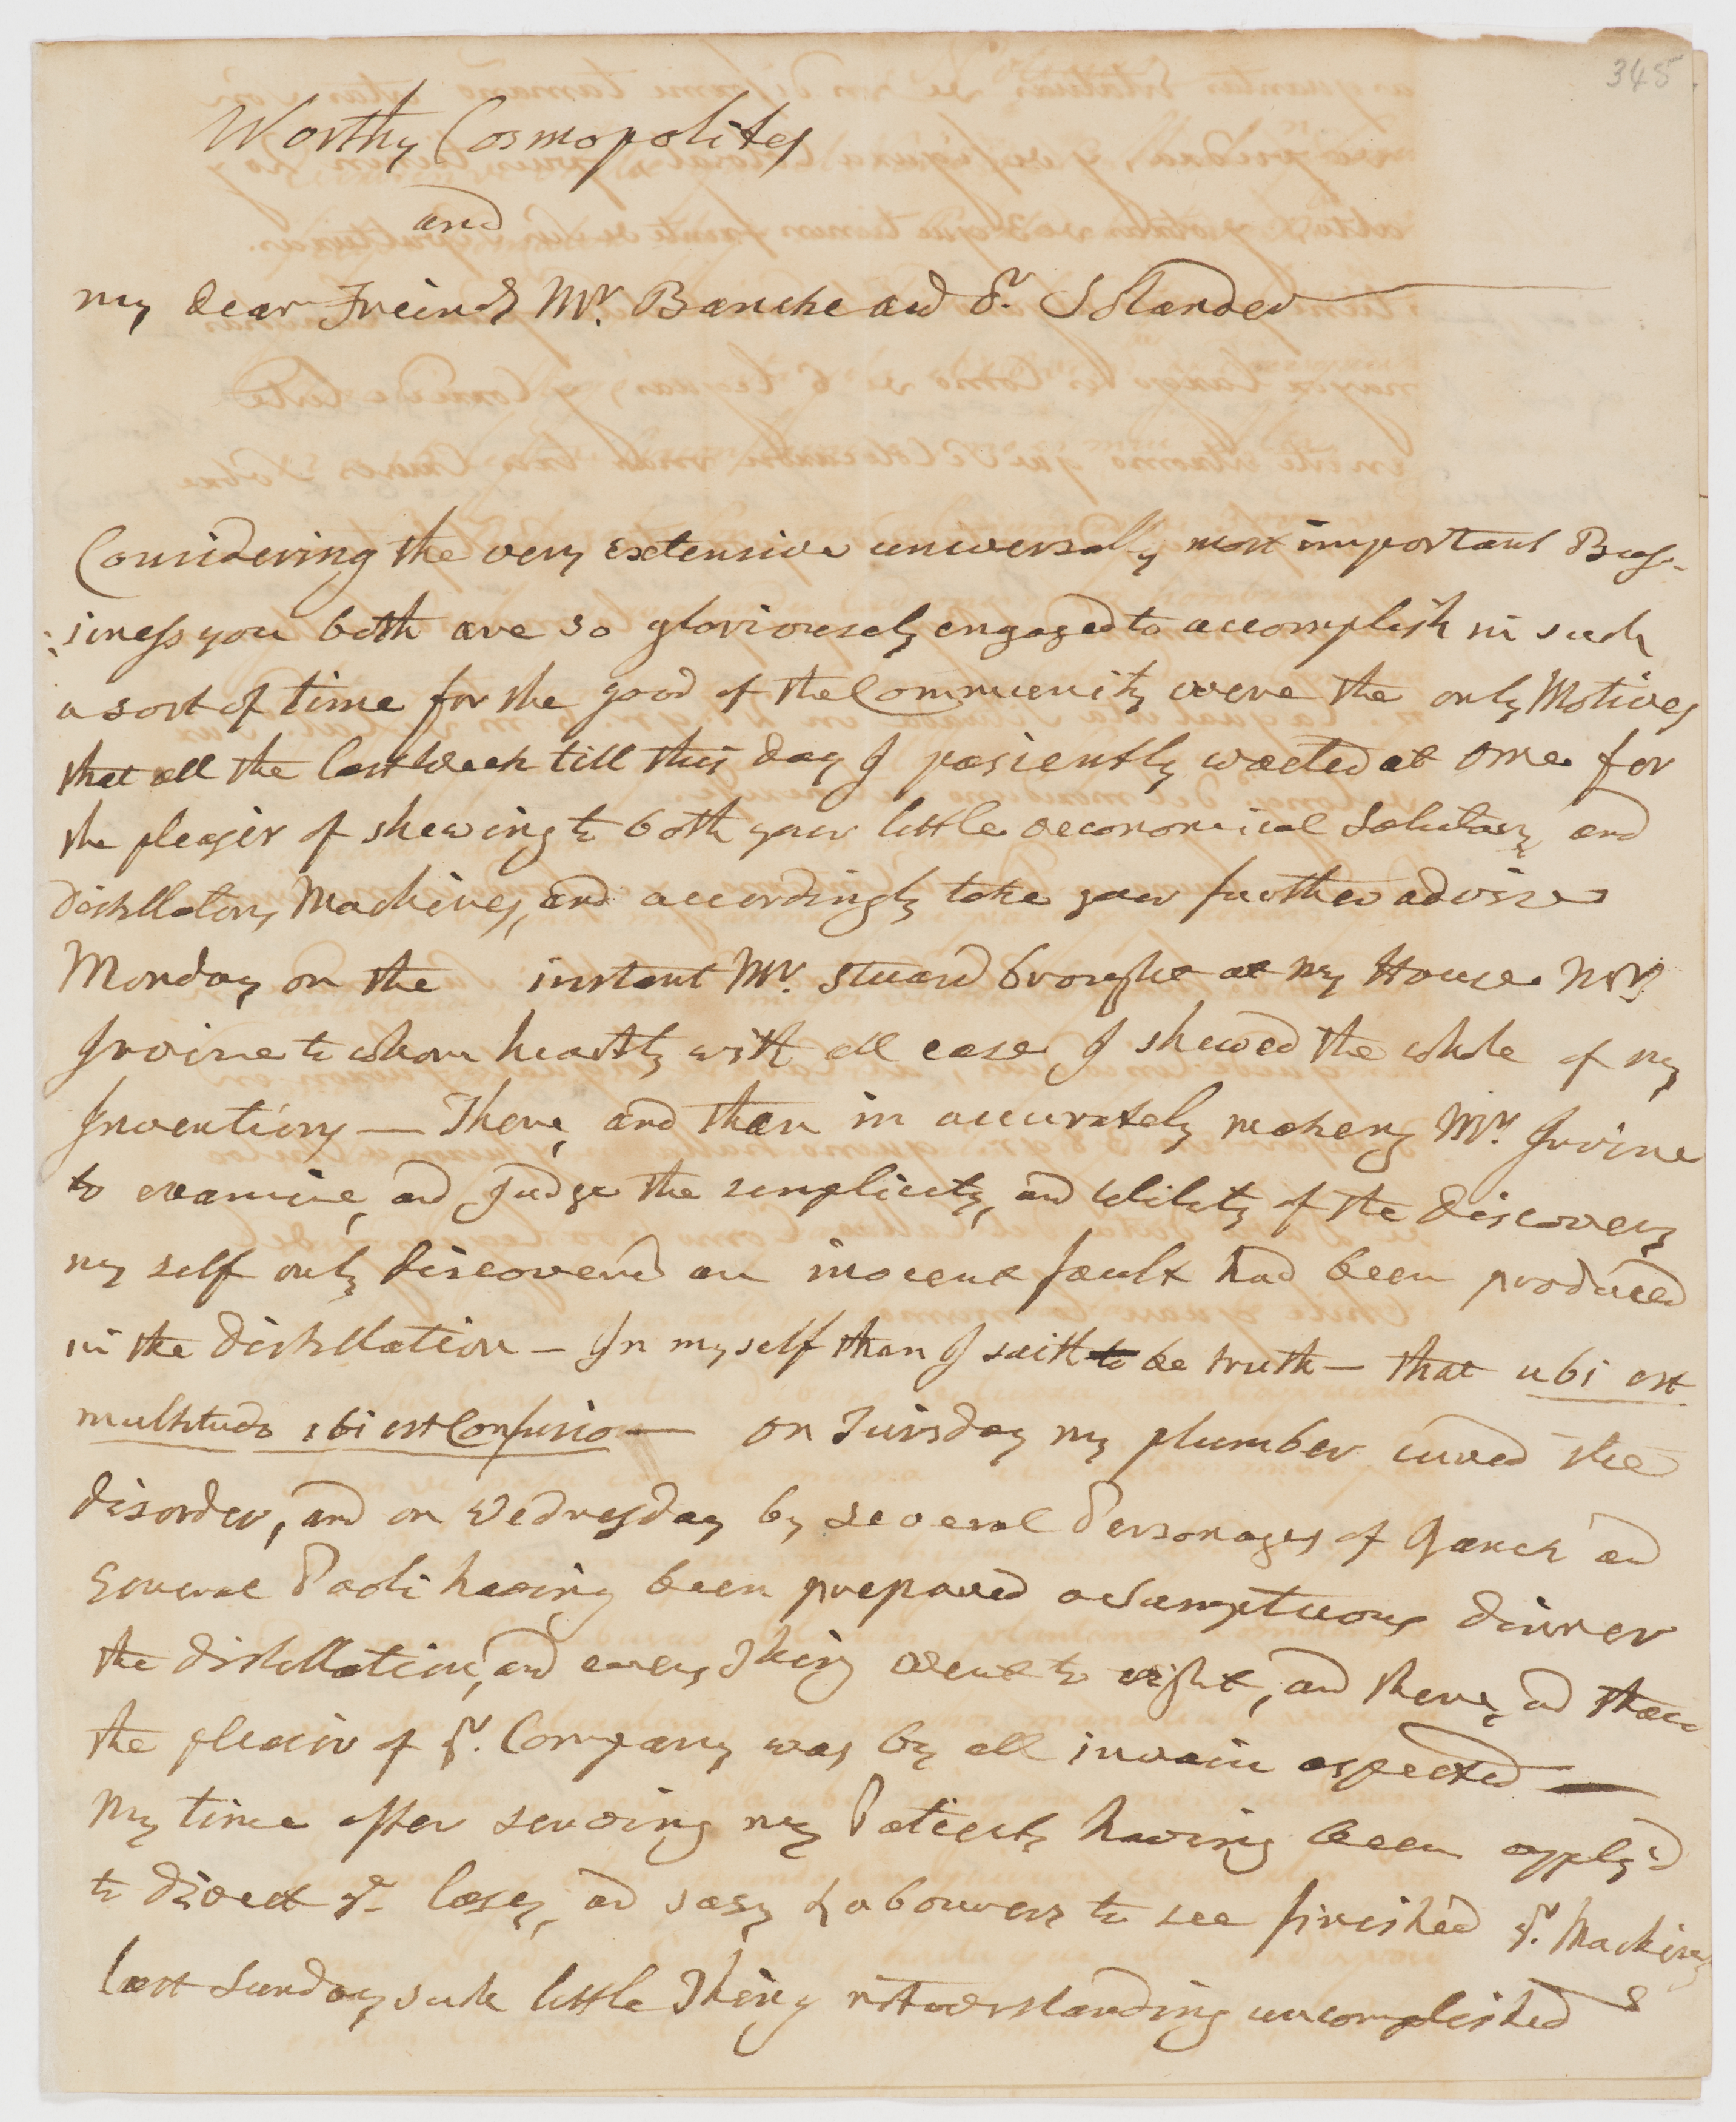 345
Worthy Cosmopolites
and
my dear Freinds Mr. Bancke and Dr. Solander
Considering the very extensive universally most important Bus-
:siness you both are so glorioussely engaged to accomplish in such
a sort of time for the good of the Community were the only Motives
that all the last Week till this day I pasiently waeted at ome for
the plesir of shewing to both your little oeconomical Salutary, and
Distillatory Machines, and accordingly take your further advise
Monday on the instant Mr. Stuard brought at my House Mr.
Irvine to whom heartily with all ease I shewed the whole of my
Inventions — There, and then in accurately making Mr. Irvine
to examine, and judge the semplicity, and Utility of the discovery
my self only discovered an inocent fault had been produced
in the distillation — In my self than I saith to be truth — that ubi est
multitudo ibi est Confusio — on Tuisday my plumber cured the
disorder, and on Wednesday by several Personages of Ranck and
General Paoli having been prepared a sumptuous dinner
the distillation, and every Thing went to right, and there, and then
the plesir of yr. Company was by all invain espected —
My time after serving my Patients having been apply'd
to direct ye. lasy, and sasy Labourers to see finished yr. Machines
last Sunday such little Thing notwistanding uncomplished